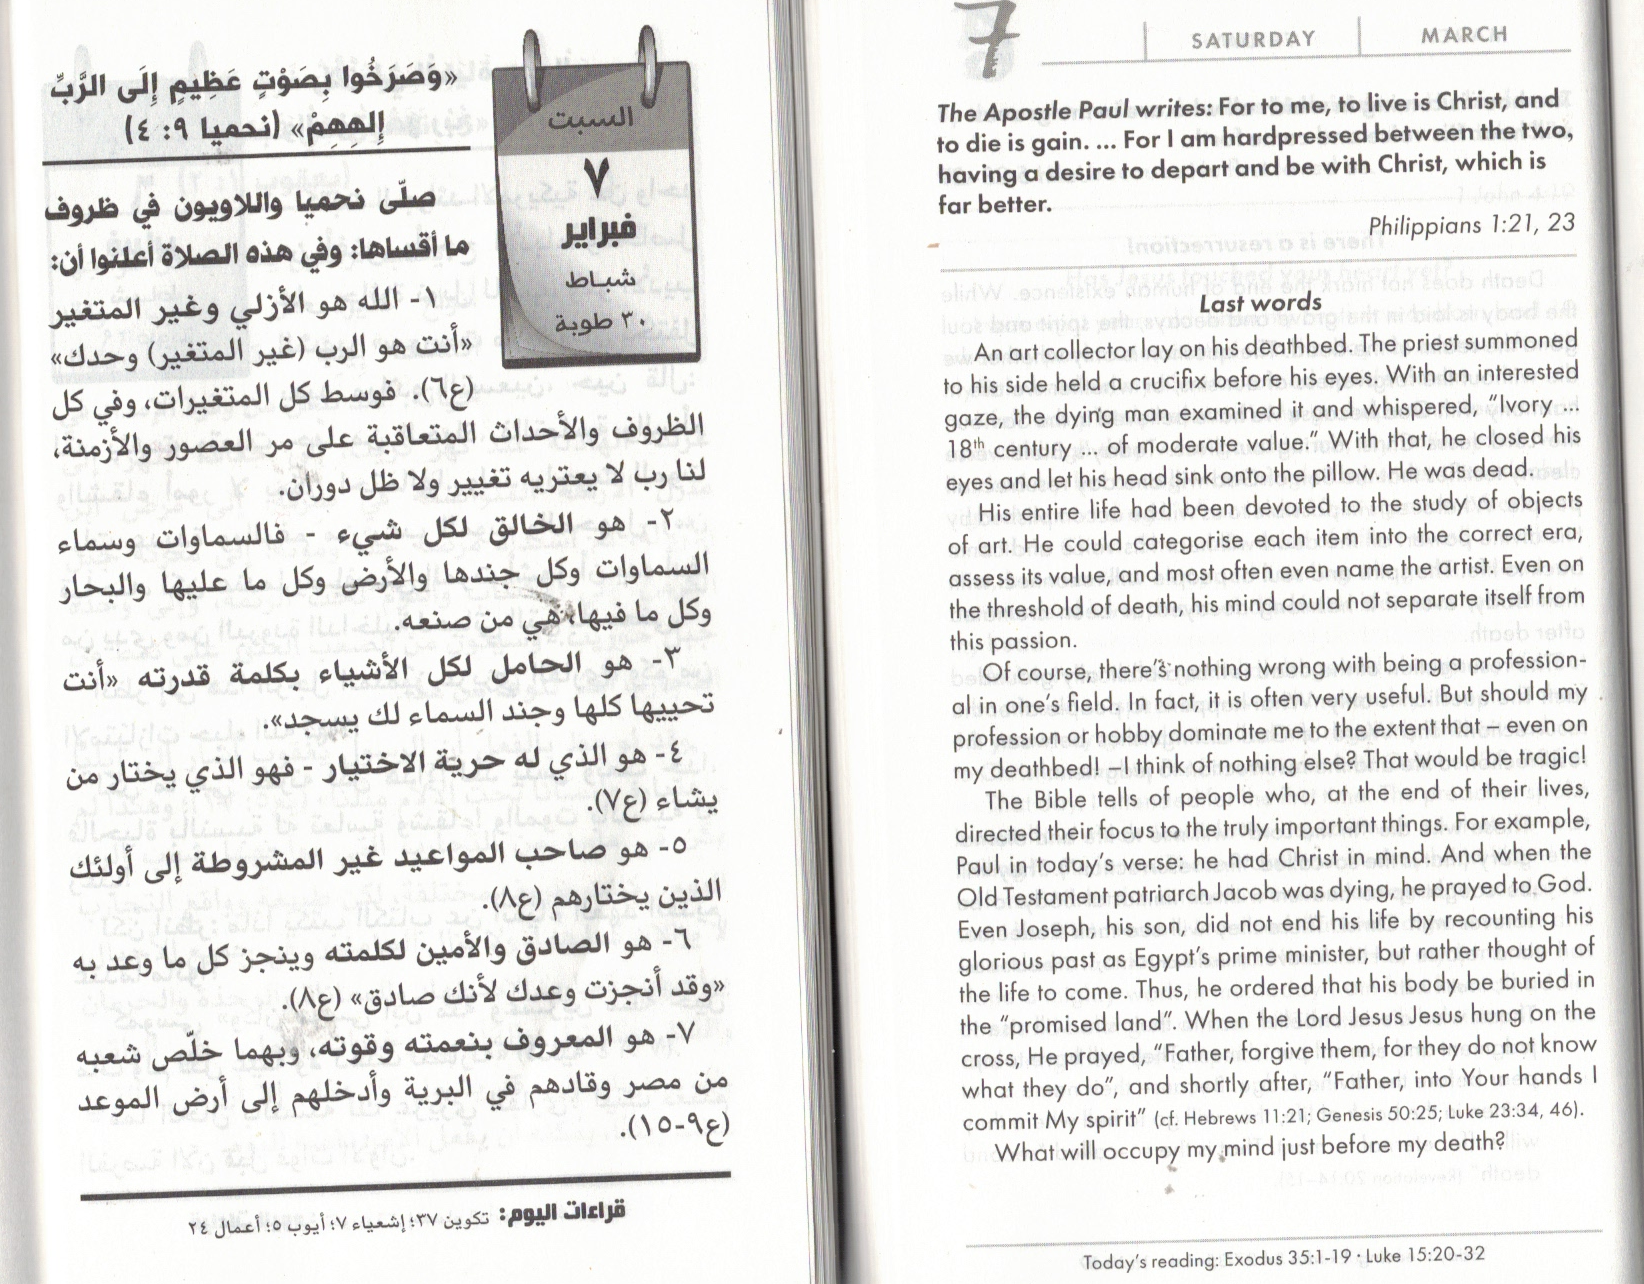 «وَصَرَخُوا بِصَوْتٍ عَظِيمٍ إِلَى الرَّبِّ
إِلهِهِمْ» (نحميا ٩: ٤)
السبت
٧
فبراير
شباط
٣٠ طوبة
صلّى نحميا واللاويون في ظروف
ما أقساها: وفي هذه الصلاة أعلنوا أن:
١- الله هو الأزلي وغير المتغير
«أنت هو الرب (غير المتغير) وحدك»
(ع٦). فوسط كل المتغيرات، وفي كل
الظروف والأحداث المتعاقبة على مر العصور والأزمنة،
لنا رب لا يعتريه تغيير ولا ظل دوران.
٢- هو الخالق لكل شيء - فالسماوات وسماء
السماوات وكل جندها والأرض وكل ما عليها والبحار
وكل ما فيها، هي من صنعه.
٣- هو الحامل لكل الأشياء بكلمة قدرته «أنت
تحييها كلها وجند السماء لك يسجد».
٤- هو الذي له حرية الاختيار - فهو الذي يختار من
يشاء (ع٧).
٥- هو صاحب المواعيد غير المشروطة إلى أولئك
الذين يختارهم (ع٨).
٦- هو الصادق والأمين لكلمته وينجز كل ما وعد به
«وقد أنجزت وعدك لأنك صادق» (ع٨).
٧- هو المعروف بنعمته وقوته، وبهما خلّص شعبه
من مصر وقادهم في البرية وأدخلهم إلى أرض الموعد
(ع٩-١٥).
قراءات اليوم: تكوين ٣٧؛ إشعياء ٧؛ أيوب ٥؛ أعمال ٢٤
7 SATURDAY MARCH
The Apostle Paul writes: For to me, to live is Christ, and
to die is gain. ... For I am hardpressed between the two,
having a desire to depart and be with Christ, which is
far better.
Philippians 1:21, 23
Last words
An art collector lay on his deathbed. The priest summoned
to his side held a crucifix before his eyes. With an interested
gaze, the dying man examined it and whispered, “Ivory ...
18th century ... of moderate value.” With that, he closed his
eyes and let his head sink onto the pillow. He was dead.
His entire life had been devoted to the study of objects
of art. He could categorise each item into the correct era,
assess its value, and most often even name the artist. Even on
the threshold of death, his mind could not separate itself from
this passion.
Of course, there’s nothing wrong with being a profession-
al in one’s field. In fact, it is often very useful. But should my
profession or hobby dominate me to the extent that – even on
my deathbed! –I think of nothing else? That would be tragic!
The Bible tells of people who, at the end of their lives,
directed their focus to the truly important things. For example,
Paul in today’s verse: he had Christ in mind. And when the
Old Testament patriarch Jacob was dying, he prayed to God.
Even Joseph, his son, did not end his life by recounting his
glorious past as Egypt’s prime minister, but rather thought of
the life to come. Thus, he ordered that his body be buried in
the “promised land”. When the Lord Jesus Jesus hung on the
cross, He prayed, “Father, forgive them, for they do not know
what they do”, and shortly after, “Father, into Your hands I
commit My spirit” (cf. Hebrews 11:21; Genesis 50:25; Luke 23:34, 46).
What will occupy my mind just before my death?
Today’s reading: Exodus 35:1-19 · Luke 15:20-32